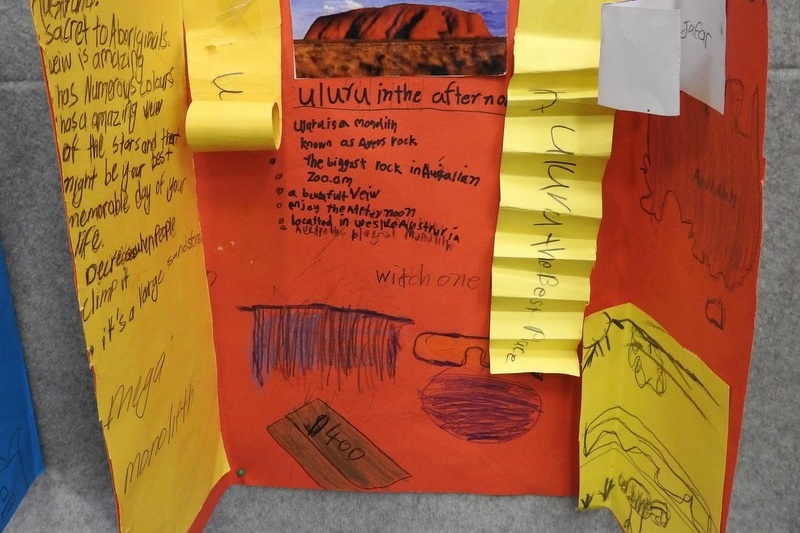 sacret to Aboriginals.
veiw is amazing
has Numerous colours
has a amazing veiw
of the stars and ther
might be your best
memorable day of your
life.
Decreases when People
climp it
it's a large sandstone
mega
monolith
u
uluru in the afterno
Uluru is a monolith
known as Ayers rock
The biggest rock in Australian
200.am
a butyfull Veiw
enjoy the Afternoon
located in
monolith
witch one
$400
uluru the Best Place
Jafar
Australian